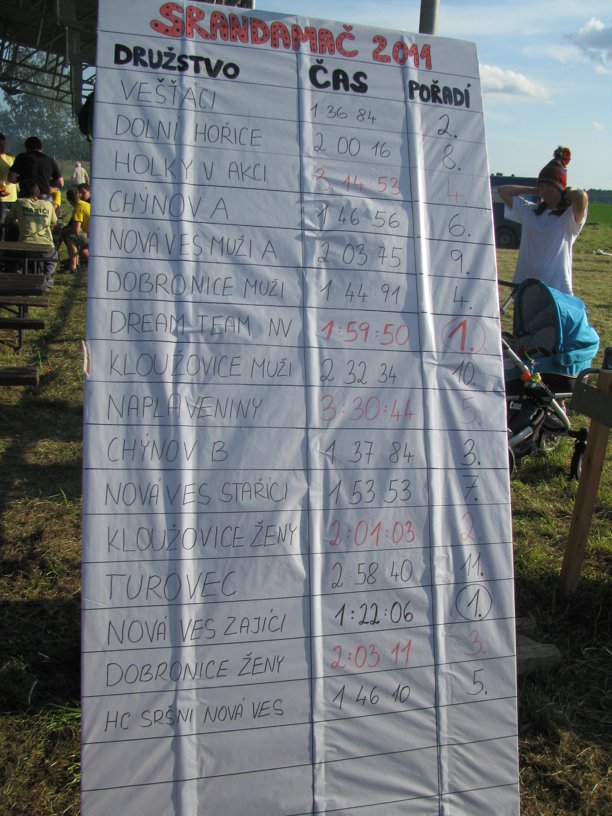 SRANDAMAČ 2011
DRUŽSTVO ČAS POŘADÍ
VEŠŤÁCI 1 36 84 2.
DOLNÍ HOŘICE 2 00 16 8.
HOLKY V AKCI 3:14:53 4.
CHÝNOV A 1 46 56 6.
NOVÁ VES MUŽI A 2 03 75 9.
DOBRONICE MUŽI 1 44 91 4.
DREAM TEAM NV 1:59:50 1.
KLOUŽOVICE MUŽI 2 32 34 10.
NAPLAVENINY 3:30:44 5.
CHÝNOV B 1 37 84 3.
NOVÁ VES STAŘÍCI 1 53 53 7.
KLOUŽOVICE ŽENY 2:01:03 2.
TUROVEC 2 58 40 11.
NOVÁ VES ZAJÍCI 1:22:06 1.
DOBRONICE ŽENY 2:03 11 3.
HC SRŠNI NOVÁ VES 1 46 10 5.